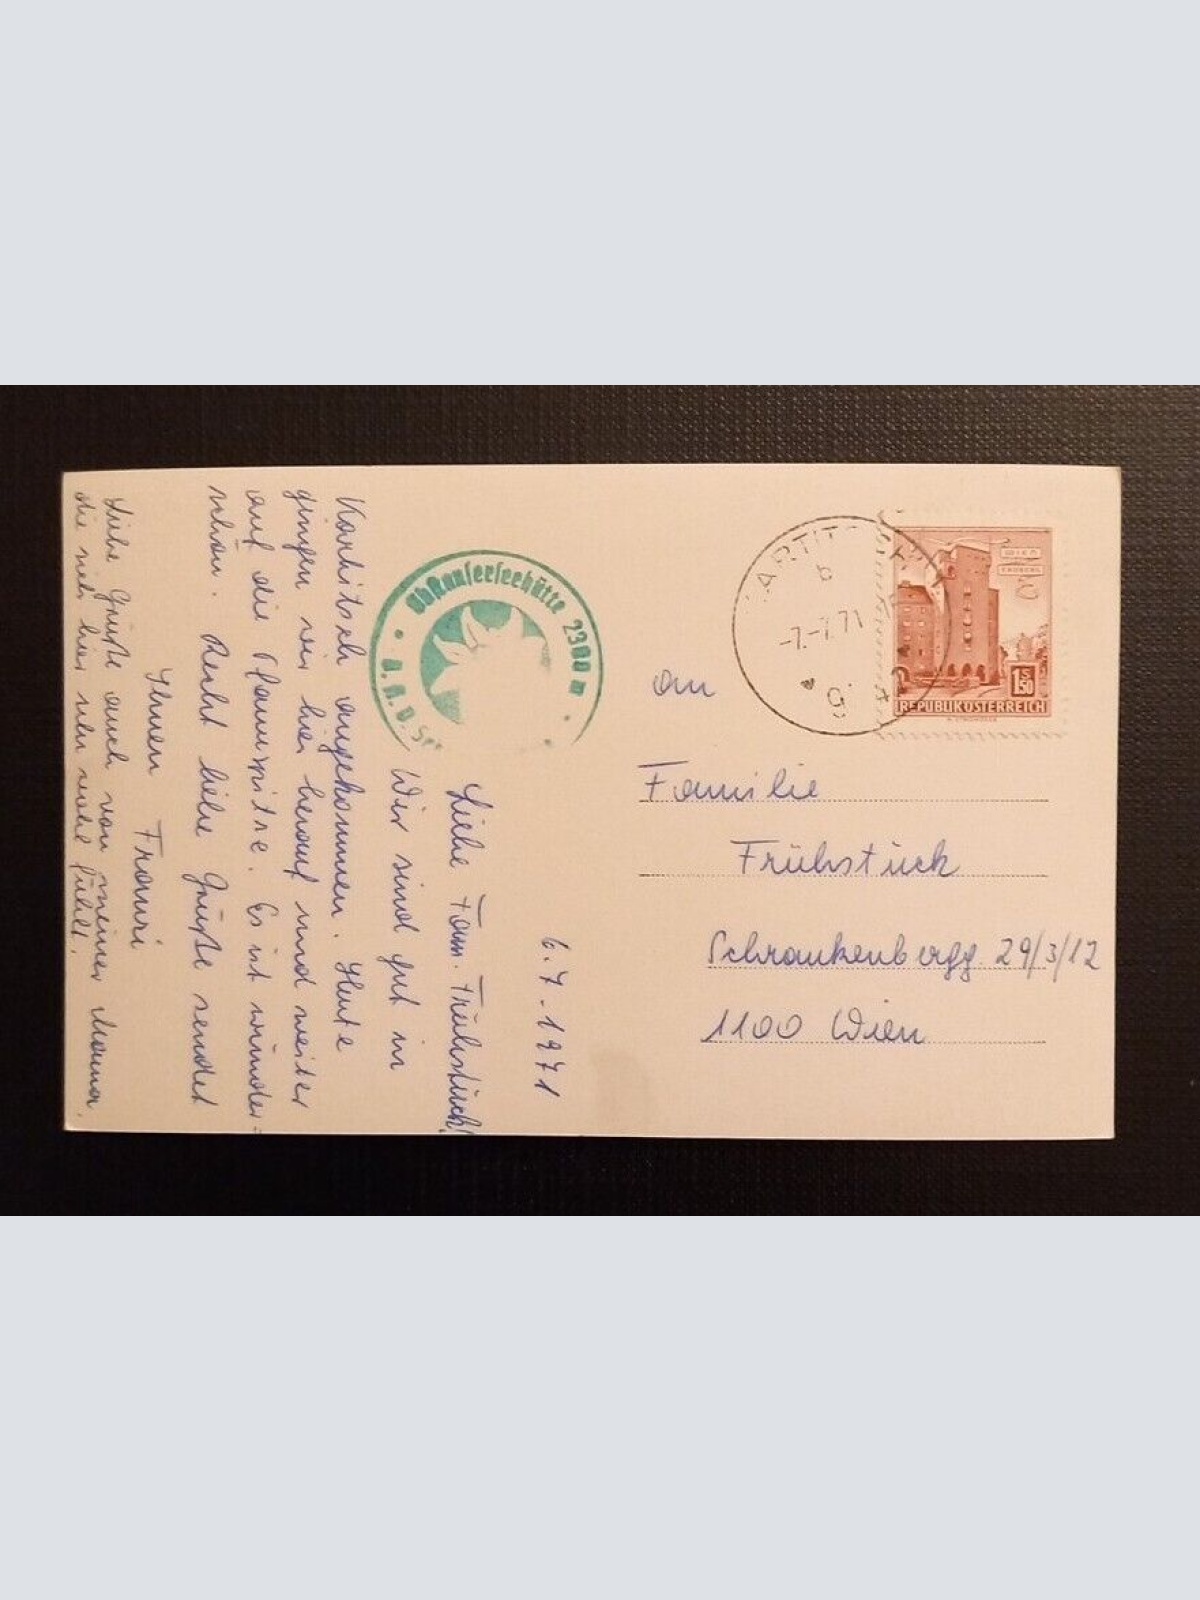 6.7.1971
Liebe Fam. Frühstück!
Wir sind gut in
Kartitsch angekommen. Heute
gingen wir hier herauf und weiter
auf die Pfannspitze. Es ist wunder=
schön. Recht liebe Grüße sendet
Ihnen Franzi
Liebe Grüße auch von meiner Mama,
die sich hier sehr wohl fühlt.
Obstanserseehütte 2300 m
KARTITSCH
b
-7.-7.71
WIEN
ERDBERG
1 S 50
REPUBLIK ÖSTERREICH
an
Familie
Frühstück
Schrankenbergg. 29/3/12
1100 Wien